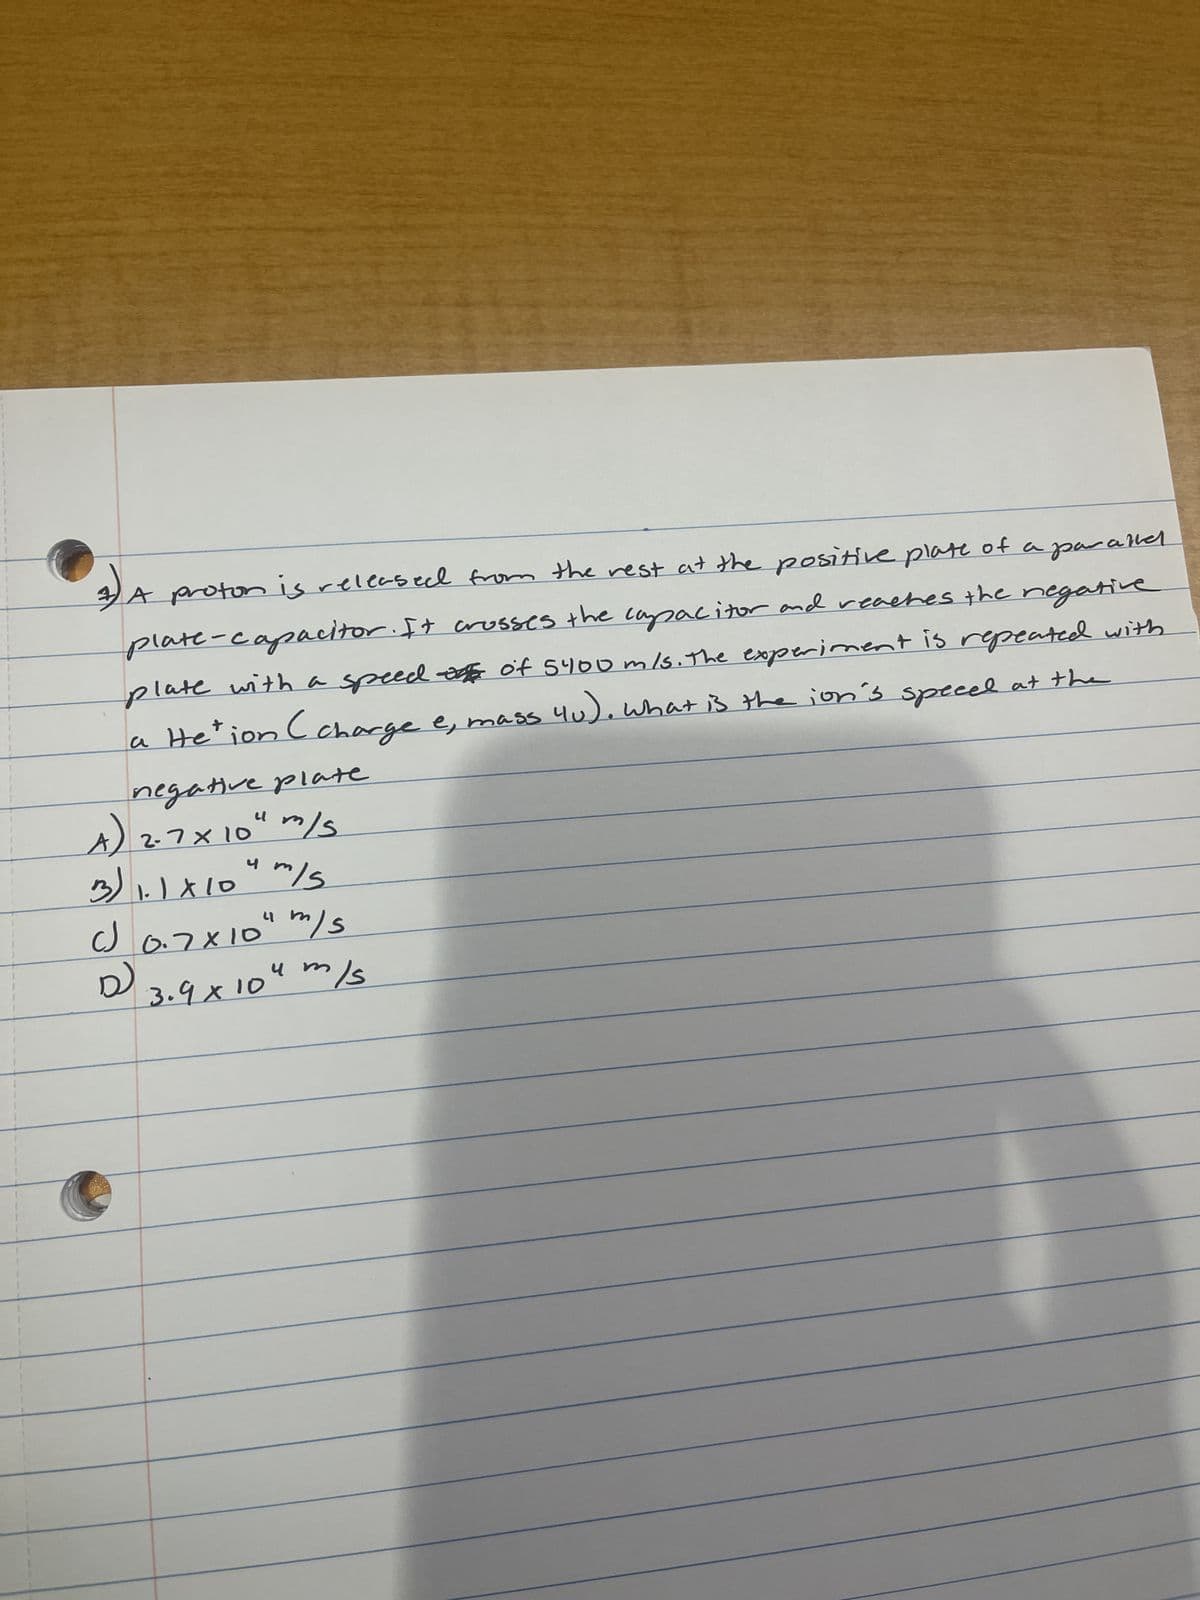 1) A proton is released from the rest at the positive plate of a parallel
plate-capacitor. It crosses the capacitor and reaches the negative
plate with a speed of 5400 m/s. The experiment is repeated with
a He⁺ ion (charge e, mass 4u). What is the ion's speed at the
negative plate
A) 2.7 x 10⁴ m/s
B) 1.1 x 10⁴ m/s
C) 0.7 x 10⁴ m/s
D) 3.9 x 10⁴ m/s